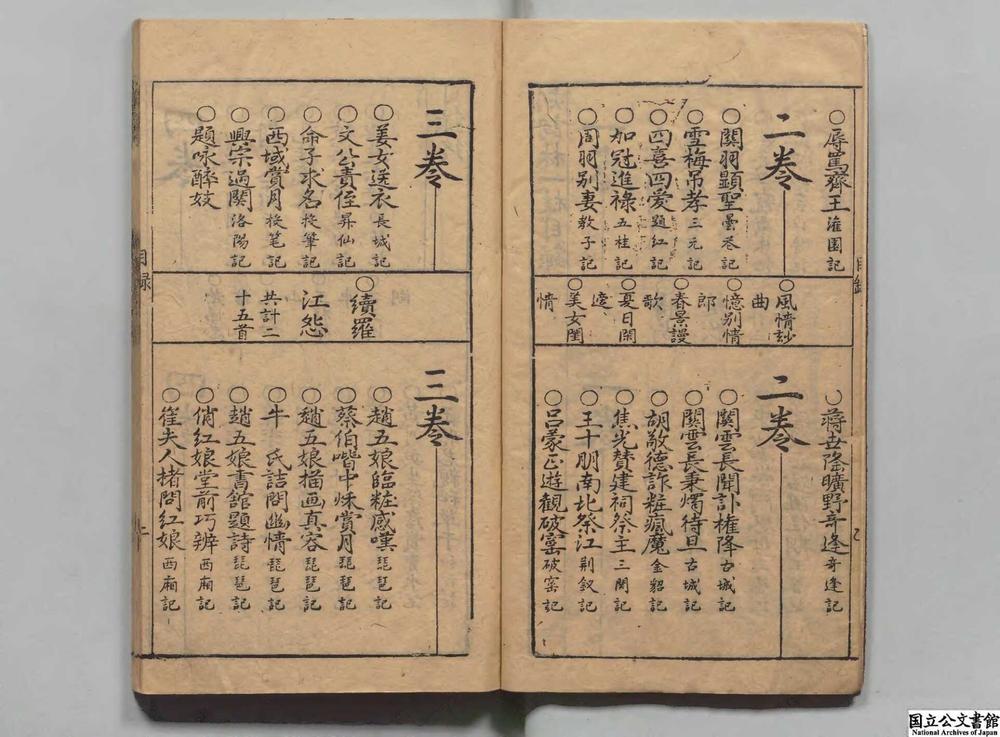 ○辱罵齊王 灌園記
二卷
○関羽顕聖 曇花記
○雪梅吊孝 三元記
○四喜四愛 題紅記
○加冠進祿 五桂記
○周羽别妻 教子記
○風情゙
曲
○憶别情
郎
○春景謾
歌
○夏日閑
○美女閨
情
○蒋世隆曠野竒逢 竒逢記
二卷
○関雲長聞訃權降 古城記
○関雲長秉燭待旦 古城記
○胡敬德詐粧瘋魔 金貂記
○焦光賛建祠祭主 三関記
○王十朋南北祭江 荆釵記
○吕蒙正遊觀破窑 破窑記
目錄
三卷
○姜女送衣 長城記
○文公責侄 昇仙記
○命子求名 投筆記
○西域賞月 投笔記
○興宗過関 洛陽記
○題咏醉妓
○續羅
江怨
共計二
十五首
三卷
○趙五娘臨粧感嘆 琵琶記
○蔡伯喈中秋賞月 琵琶記
○趙五娘描画真容 琵琶記
○牛氏詰問幽情 琵琶記
○趙五娘書館題詩 琵琶記
○俏紅娘堂前巧辨 西廂記
○崔夫人拷問紅娘 西廂記
目録
国立公文書館
National Archives of Japan